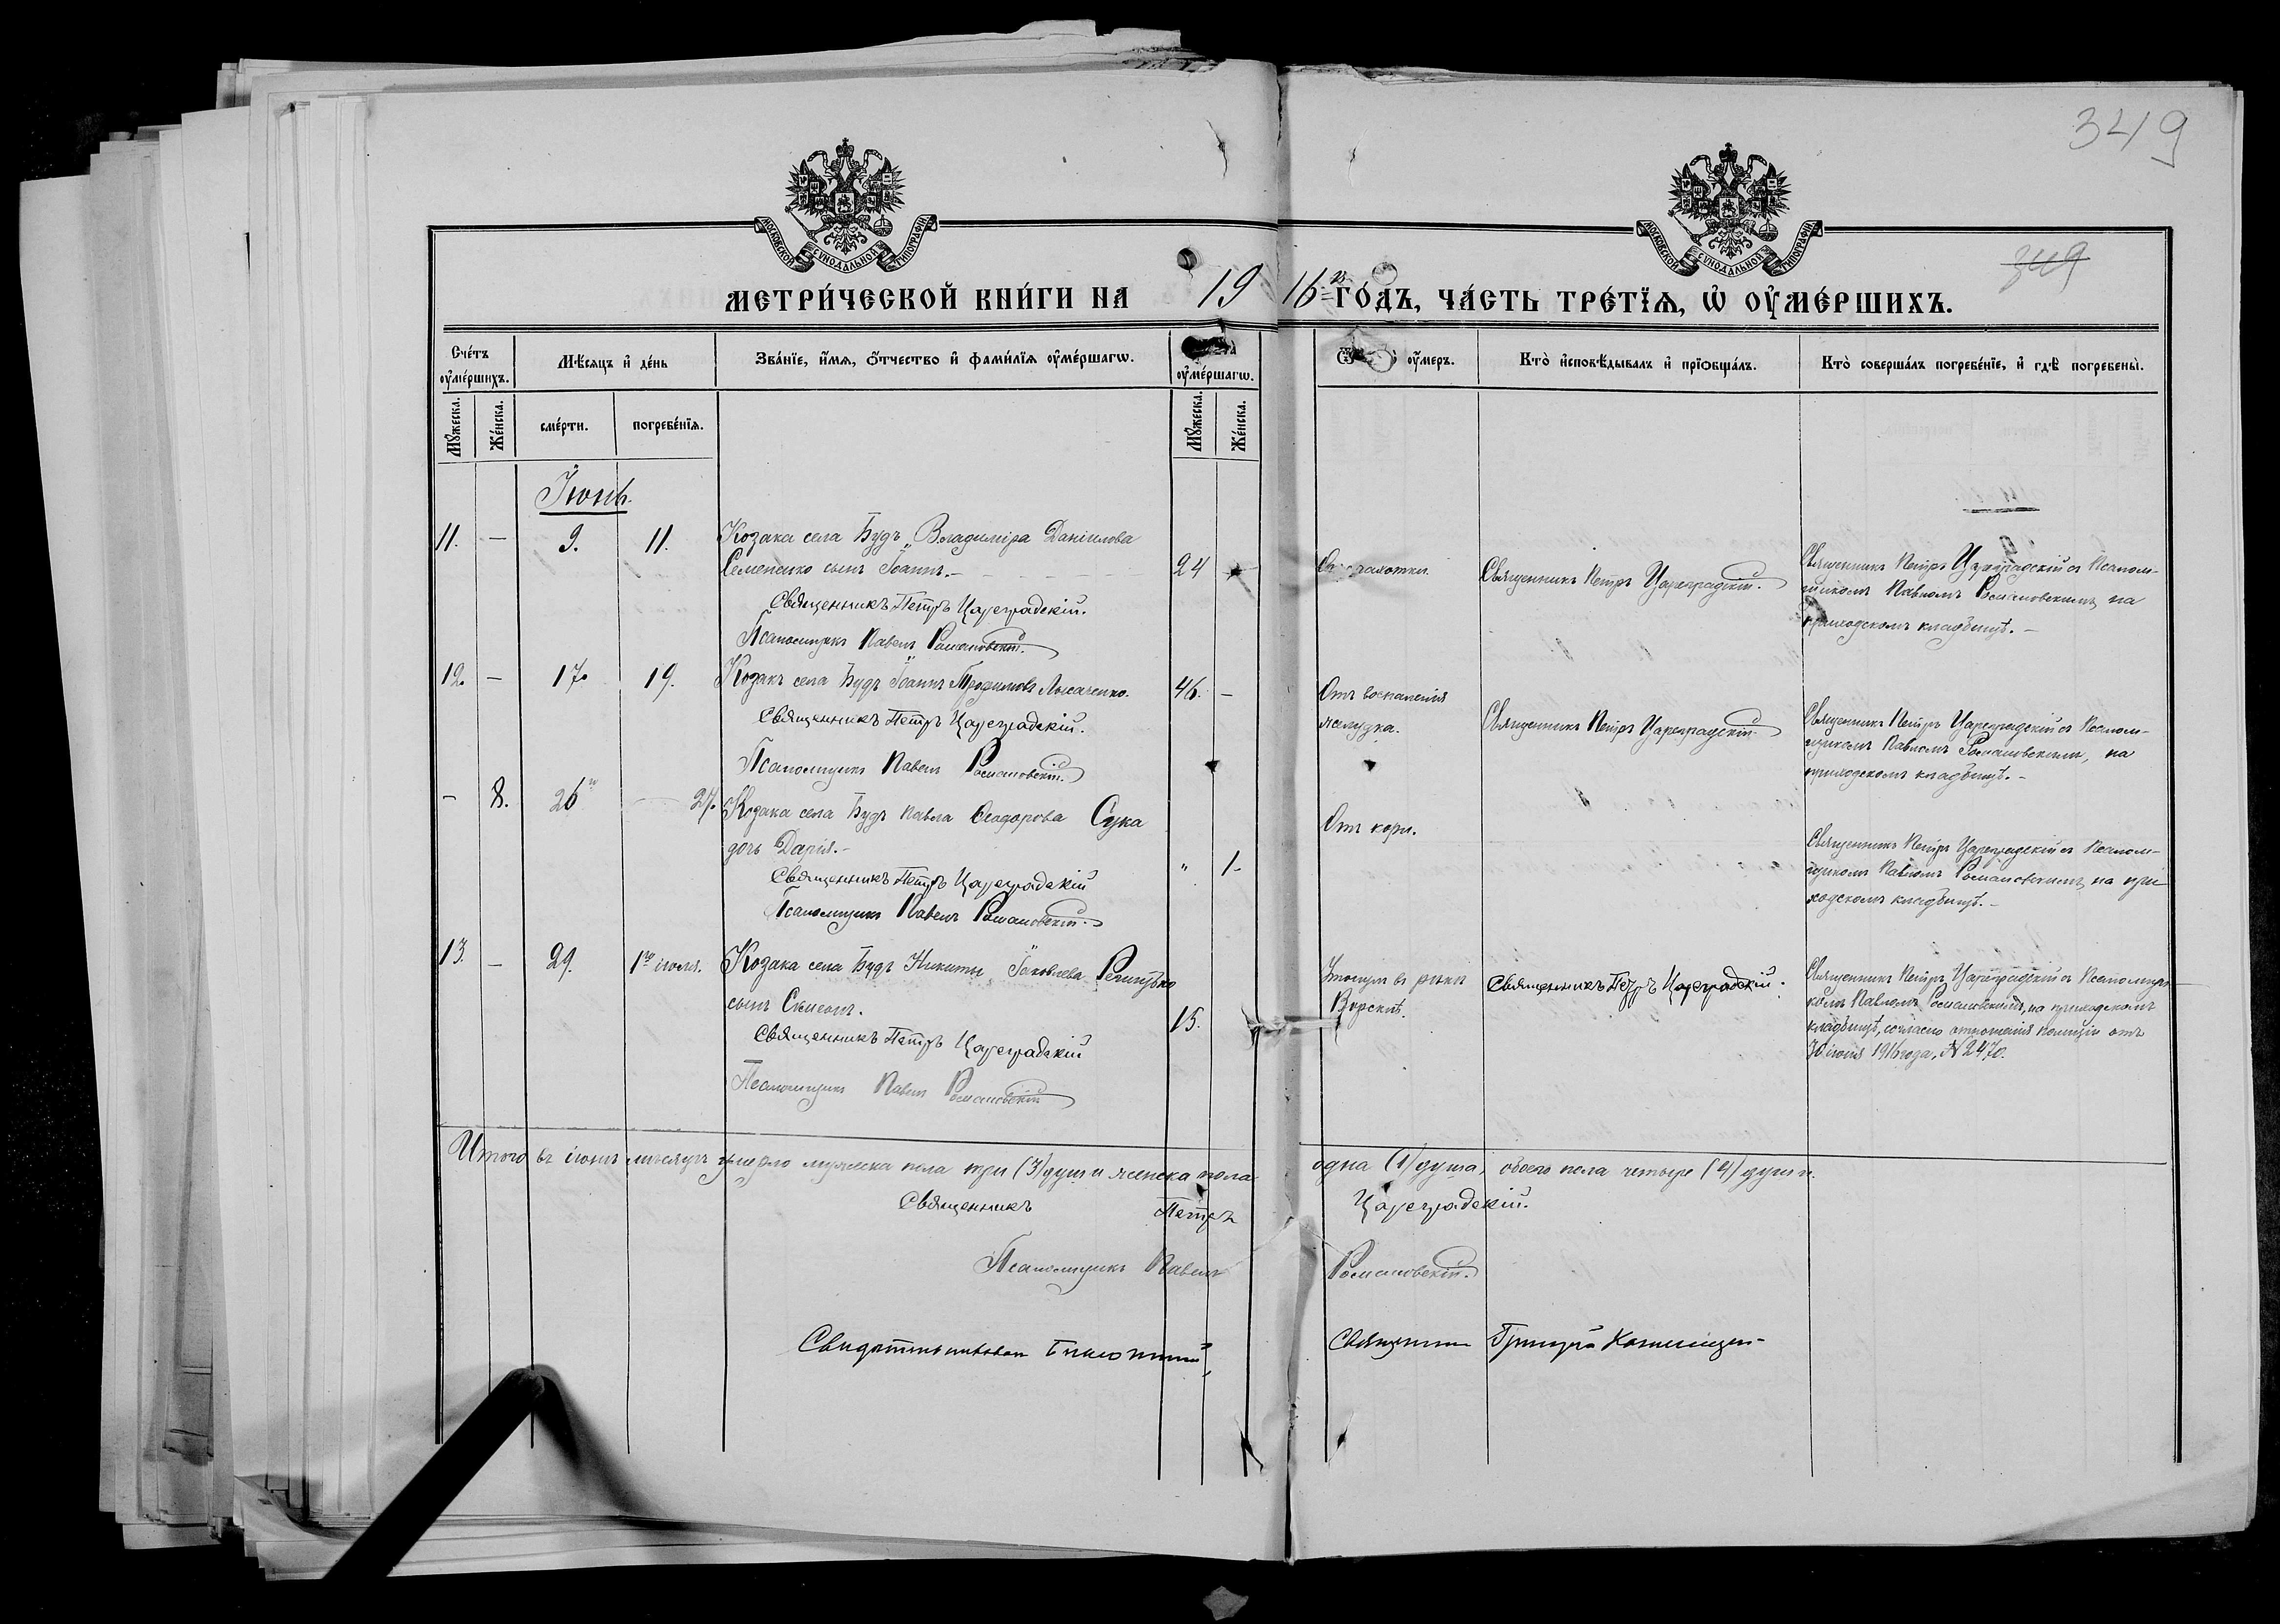 349
МОСКОВСКОЙ СѴНОДАЛЬНОЙ ТИПОГРАФІИ
МОСКОВСКОЙ СѴНОДАЛЬНОЙ ТИПОГРАФІИ
349
МЕТРИ́ЧЕСКОЙ КНИ́ГИ НА 1916й ГО́ДЪ, ЧА́СТЬ ТРЕ́ТЇѦ, Ѡ҆ ОУ҆МЕ́РШИХЪ.
Сче́тъ оу҆ме́ршихъ.
Мѣ́сѧцъ и҆ де́нь
Зва́нїе, и҆́мѧ, ѻ҆́тчество и҆ фами́лїѧ оу҆ме́ршагѡ.
оу҆ме́ршагѡ.
оу҆́меръ.
Кто̀ и҆сповѣ́дывалъ и҆ прїѻбща́лъ.
Кто̀ соверша́лъ погребе́нїе, и҆ гдѣ̀ погребены̀.
Мꙋ́жеска.
Же́нска.
сме́рти.
погребе́нїѧ.
Мꙋ́жеска.
Же́нска.
Іюнь.
11. — 9. 11. Козака села Будъ Владиміра Даніилова
Семененко сынъ Іоаннъ.— 24 —
Священникъ Петръ Цареградскій.
Псаломщикъ Павелъ Романовскій.
чахотки.
Священникъ Петръ Цареградскій.
Священникъ Петръ Цареградскій съ Псалом-
щикомъ Павломъ Романовскимъ, на
приходскомъ кладбищѣ.—
12. — 17. 19. Козакъ села Будъ Іоаннъ Трофимовъ Лысаченко. 46. —
Священникъ Петръ Цареградскій.
Псаломщикъ Павелъ Романовскій.
Отъ воспаленія
желудка.
Священникъ Петръ Цареградскій.
Священникъ Петръ Цареградскій съ Псалом-
щикомъ Павломъ Романовскимъ, на
приходскомъ кладбищѣ.—
— 8. 26го 27. Козака села Будъ Павла Ѳеодорова Сука
дочь Дарія.—
" 1-
Священникъ Петръ Цареградскій
Псаломщикъ Павелъ Романовскій.
Отъ кори.
Священникъ Петръ Цареградскій съ Псалом-
щикомъ Павломъ Романовскимъ, на при-
ходскомъ кладбищѣ.—
13. — 29. 1го іюля. Козака села Будъ Никиты Іаковлева
сынъ Симеонъ. 15.
Священникъ Петръ Цареградскій
Псаломщикъ Павелъ Романовскій
Утонулъ въ рѣкѣ
Ворсклѣ.
Священникъ Петръ Цареградскій.
Священникъ Петръ Цареградскій съ Псаломщи-
комъ Павломъ Романовскимъ, на приходскомъ
кладбищѣ, согласно отношенія полиціи отъ
30 іюня 1916 года, № 2470.
Итого въ іюнѣ мѣсяцѣ умерло мужеска пола три (3) души женска пола одна (1) душа, обоего пола четыре (4) души.
Священникъ Петръ Цареградскій.
Псаломщикъ Павелъ Романовскій.
Священникъ Григорій